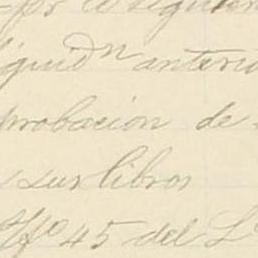 por el siguien
liquidn anterio
probacion de
sus libros
Nº 45 del L